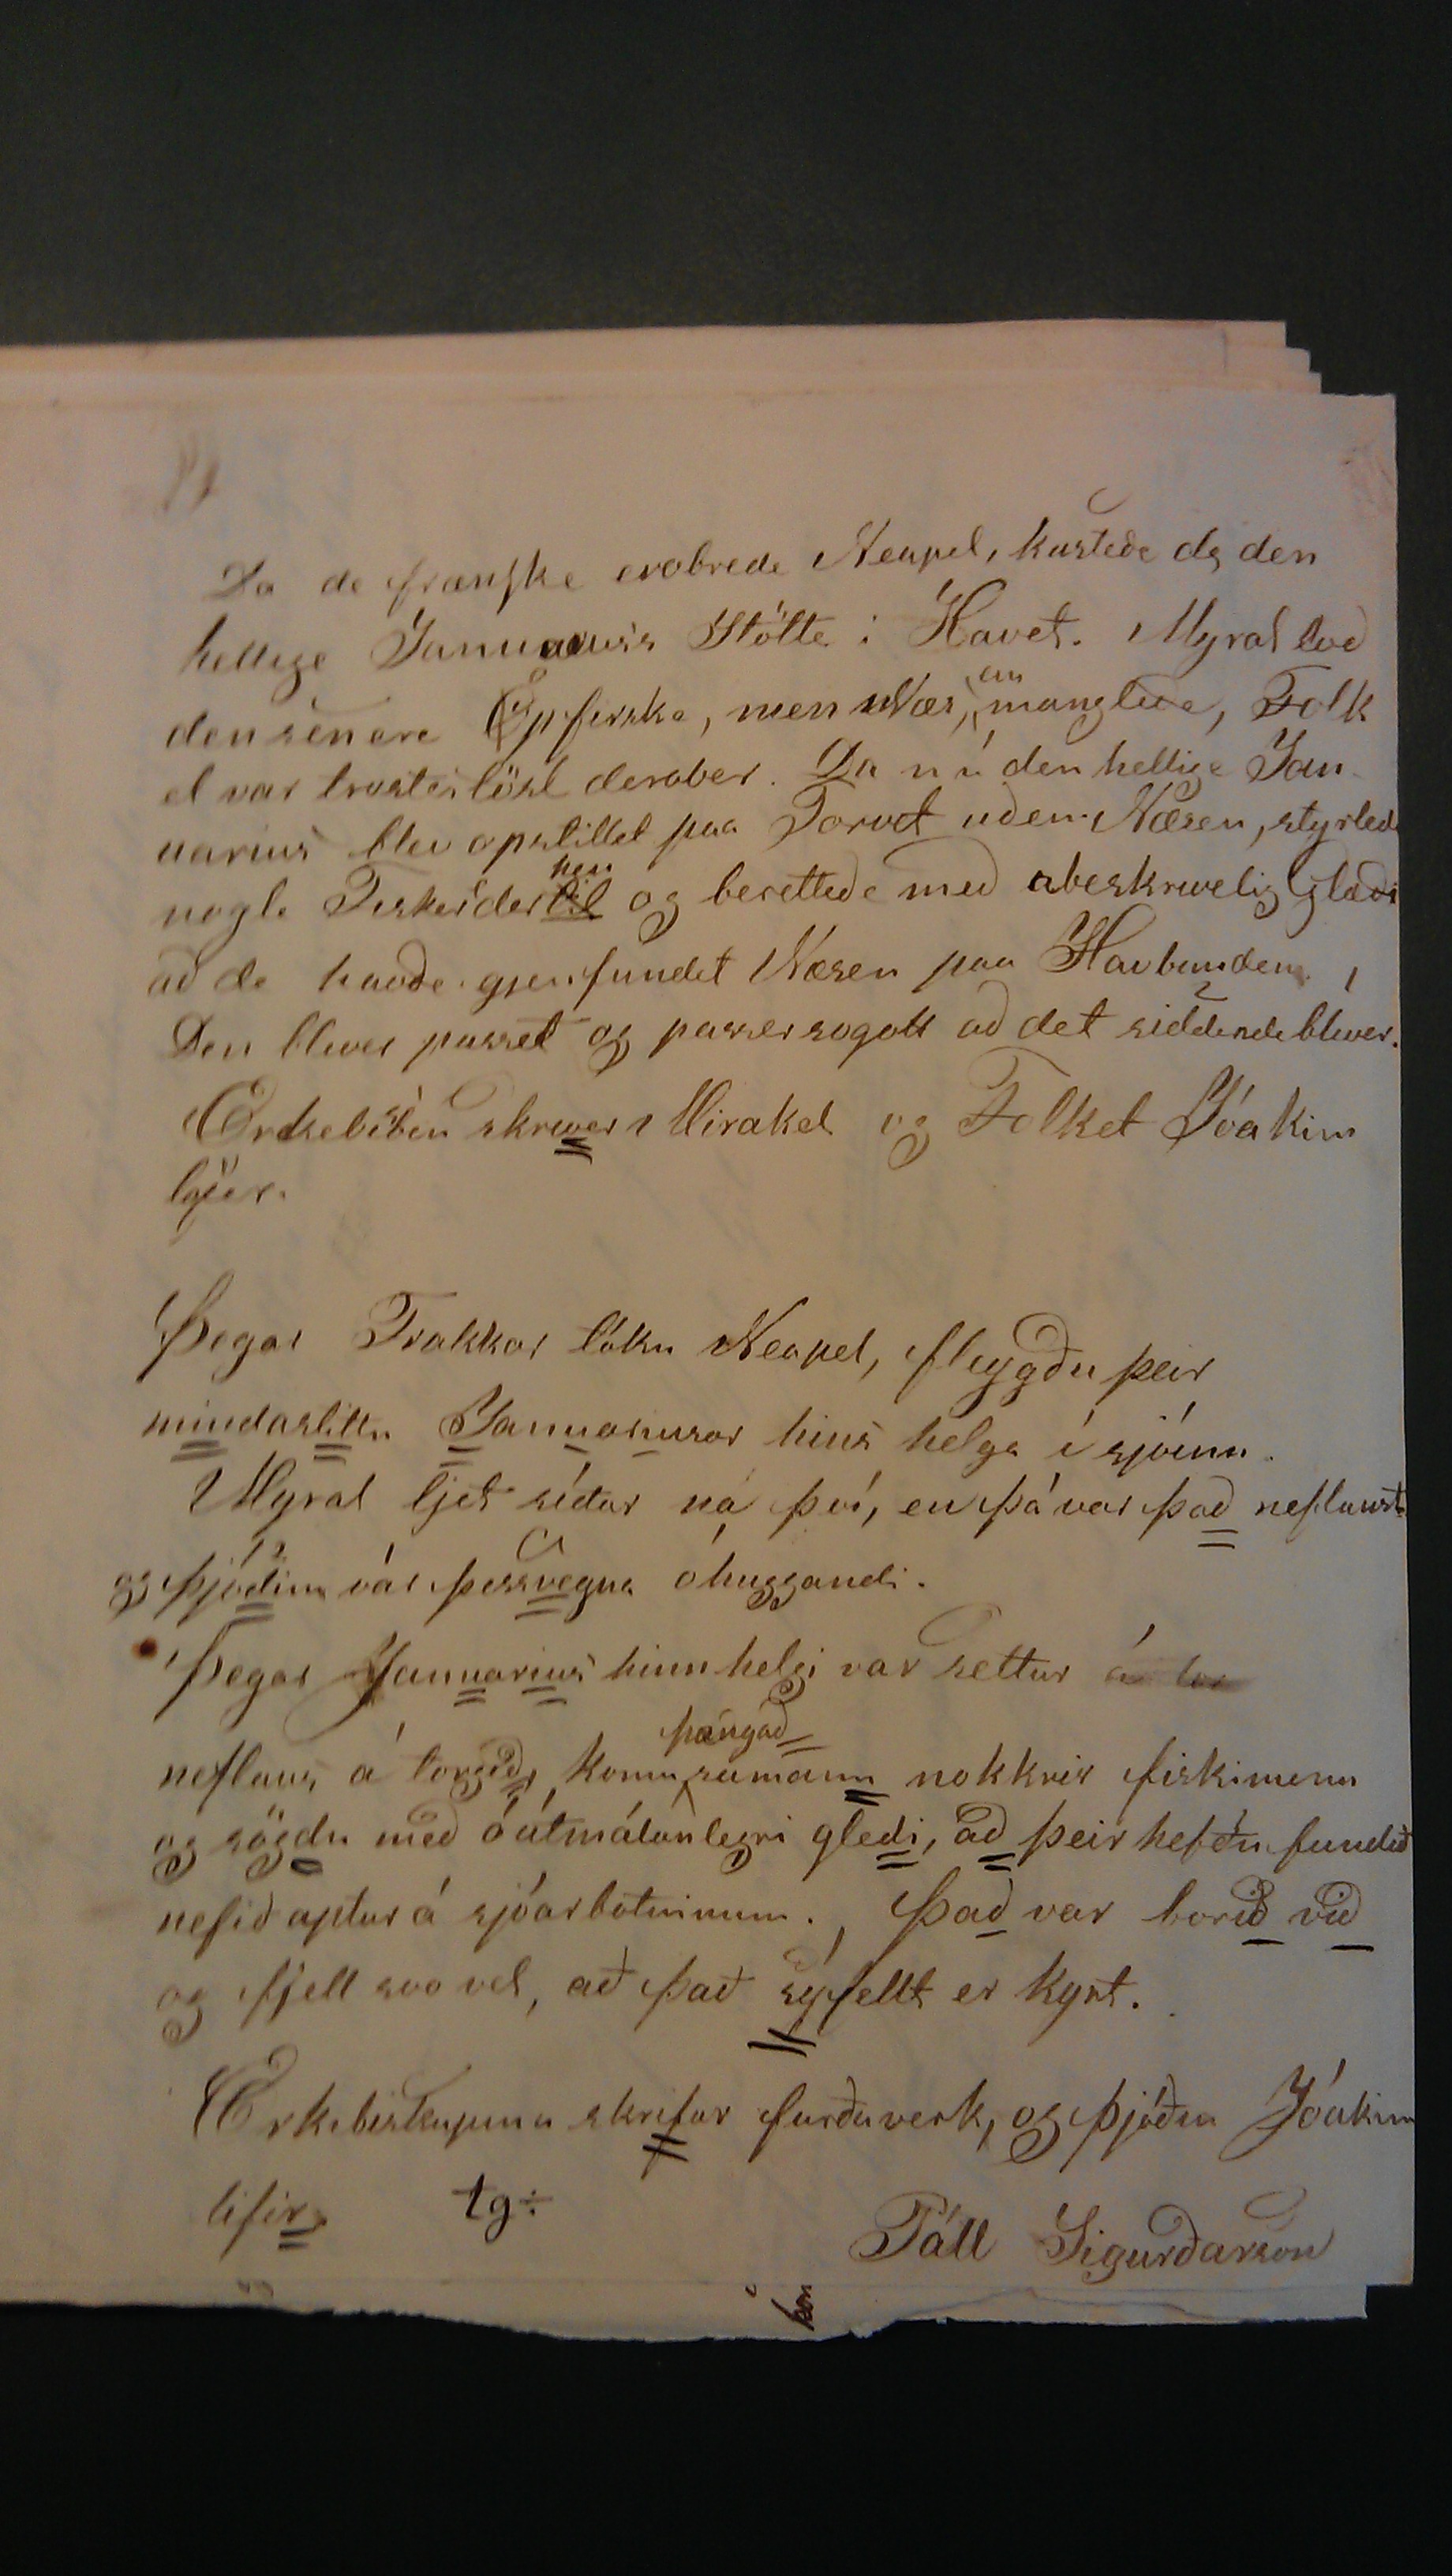 Da de franske erobrede Neapel, kastede de den
hellige Januariuss Stötte i Havet. Myrat lod
den senere Opfiske, men Næsen manglede, Folk
et var trøsteslöst derover. Da nú den hellige Jan-
uarius blev opstillet paa Torvet uden Næsen, styrtede
nogle Fiskere der til hen og berettede med ubeskrivelig Glæde
að de havde gjenfundet Næsen paa Havbunden.
Den bliver passet og passer so godt að det siddende bliver.
Erkebiben skriver Mirakel og Folket Jóakim
lyver.
Þegar Frakkar tóku Neapel, fleygðu þeir
mindastittu Januariusar hins helga í sjóinn.
Myrat ljet síðar ná því, en þá var það neflaust
og þjóðin var þessvegna óhuggandi.
Þegar Januarius hinn helgi var settur á tor
neflaus á torgið, komu þángað samann nokkrir fiskimenn
og sögdu með óútmálanlegri gledi, að þeir hefðu fundið
nefið aptur á sjóarbotninum. Það var borið við
og fjell svo vel, að það sýfellt er kyrt.
Erkibiskupinn skrifar furðuverk, og þjóðin Jóakim
lifir. tg÷
Páll Sigurðarson